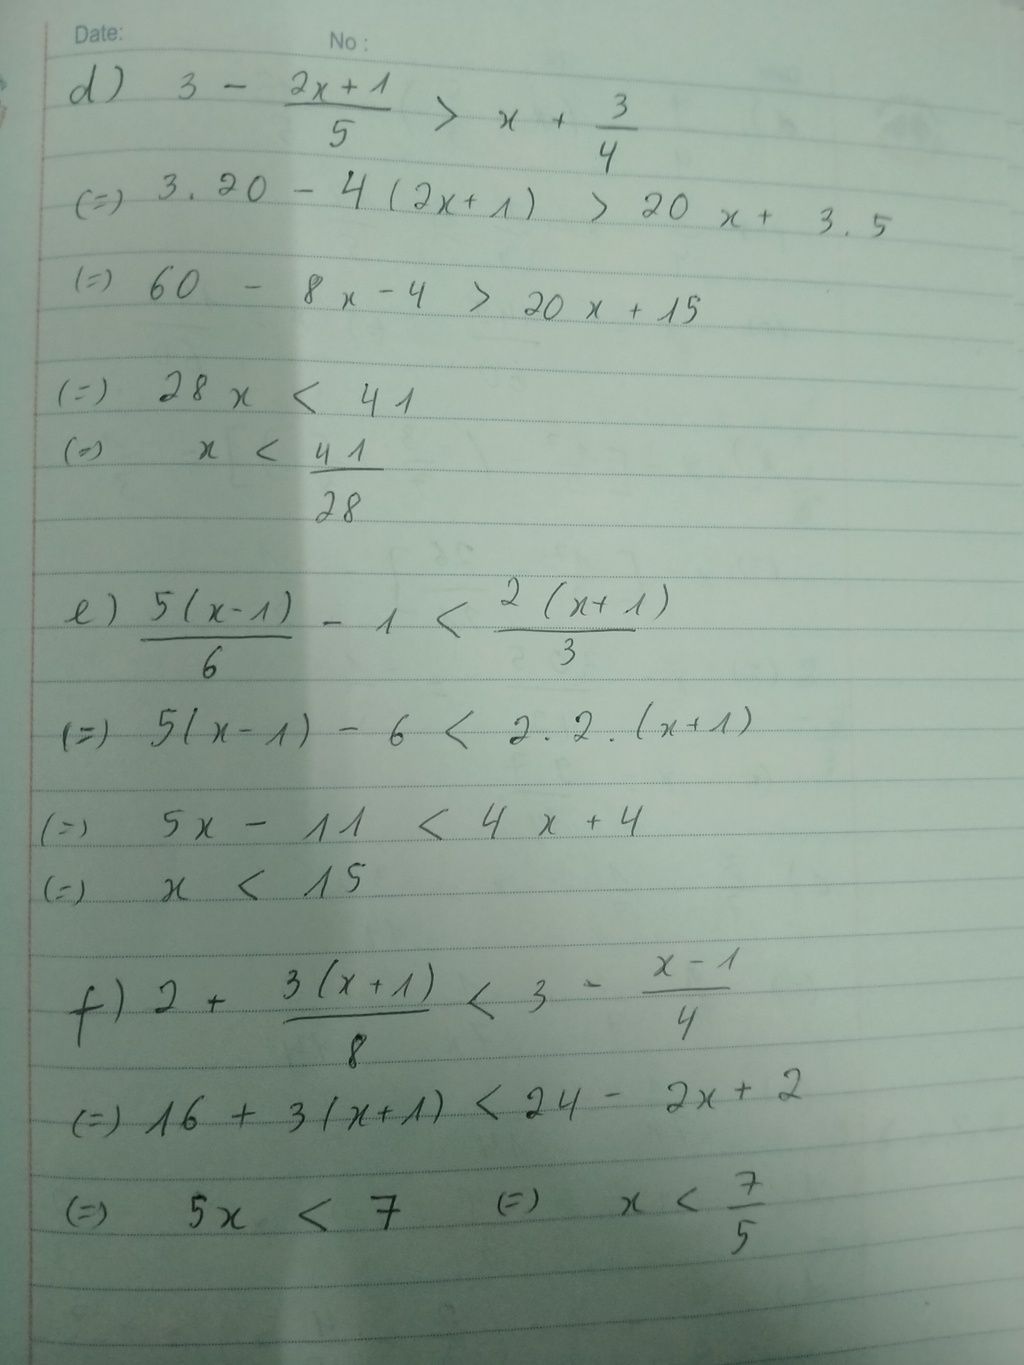 Date: No :
d) 3 - \frac{2x+1}{5} > x + \frac{3}{4}
(=) 3.20 - 4(2x+1) > 20x + 3.5
(=) 60 - 8x - 4 > 20x + 15
(=) 28x < 41
(=) x < \frac{41}{28}
e) \frac{5(x-1)}{6} - 1 < \frac{2(x+1)}{3}
(=) 5(x-1) - 6 < 2.2.(x+1)
(=) 5x - 11 < 4x + 4
(=) x < 15
f) 2 + \frac{3(x+1)}{8} < 3 - \frac{x-1}{4}
(=) 16 + 3(x+1) < 24 - 2x + 2
(=) 5x < 7 (=) x < \frac{7}{5}